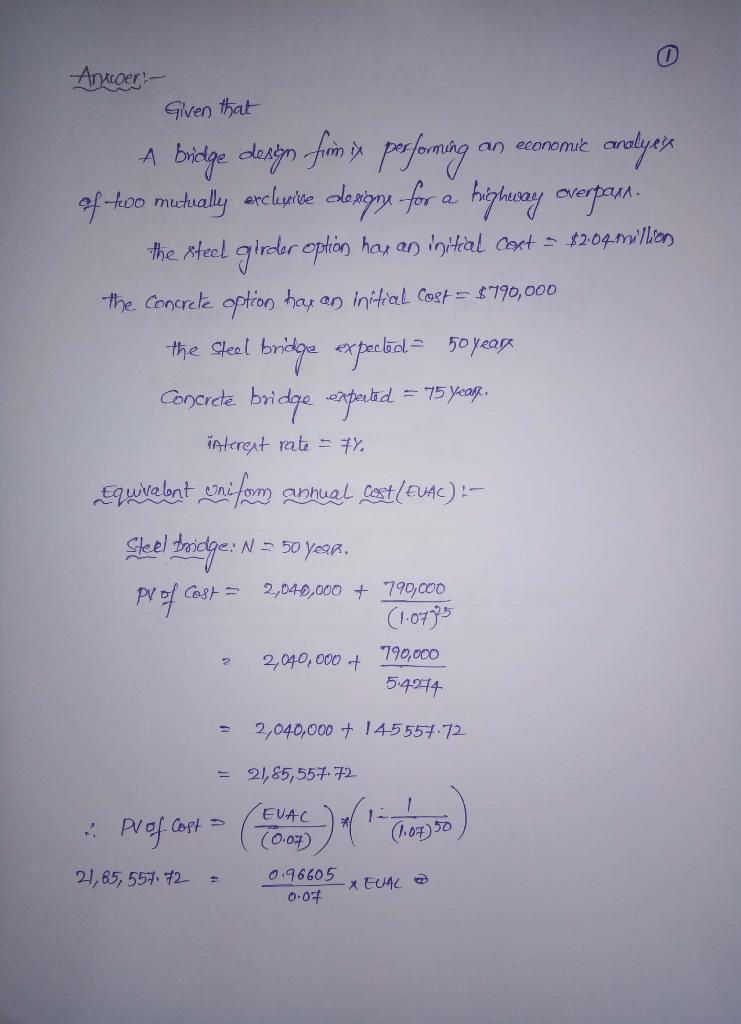 ①
Answer:-
Given that
A bridge design firm is performing an economic analysis
of two mutually exclusive designs for a highway overpass.
the steel girder option has an initial cost = $2.04 million
the concrete option has an initial cost = $790,000
the steel bridge expected = 50 years
Concrete bridge expected = 75 years.
interest rate = 7%.
Equivalent uniform annual cost (EUAC) :-
Steel bridge: N = 50 years.
PV of cost = 2,040,000 + 790,000 / (1.07)^25
= 2,040,000 + 790,000 / 5.4274
= 2,040,000 + 145557.72
= 21,85,557.72
∴ PV of cost = (EUAC / (0.07)) * (1 - 1 / (1.07)^50)
21,85,557.72 = 0.96605 / 0.07 x EUAC